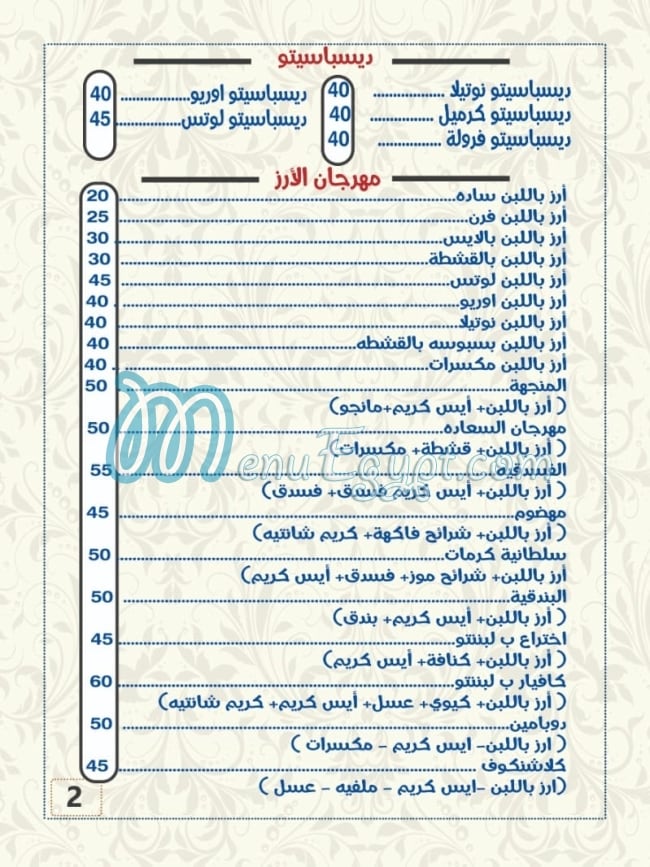 ديسباسيتو
ديسباسيتو نوتيلا ................. 40
ديسباسيتو كرميل ............... 40
ديسباسيتو فرولة ............... 40
ديسباسيتو اوريو................. 40
ديسباسيتو لوتس................ 45
مهرجان الأرز
أرز باللبن ساده........................ 20
أرز باللبن فرن........................ 25
أرز باللبن بالايس........................ 30
أرز باللبن بالقشطة........................ 30
أرز باللبن لوتس........................ 45
أرز باللبن اوريو........................ 40
أرز باللبن نوتيلا........................ 40
أرز باللبن بسبوسه بالقشطه........................ 40
أرز باللبن مكسرات........................ 40
المنجهة........................ 50
( أرز باللبن+ أيس كريم+مانجو)
مهرجان السعاده........................ 50
( أرز باللبن+ قشطة+ مكسرات)
الفسدقيه........................ 55
( أرز باللبن+ أيس كريم فسدق+ فسدق)
مهضوم........................ 45
( أرز باللبن+ شرائح فاكهة+ كريم شانتيه)
سلطانية كرمات........................ 50
أرز باللبن+ شرائح موز+ فسدق+ أيس كريم)
البندقية........................ 50
( أرز باللبن+ أيس كريم+ بندق)
اختراع ب لبننتو........................ 45
( أرز باللبن+ كنافة+ أيس كريم)
كافيار ب لبننتو........................ 60
( أرز باللبن+ كيوي+ عسل+ أيس كريم+ كريم شانتيه)
دوبامين........................ 50
( ارز باللبن– ايس كريم – مكسرات )
كلاشنكوف........................ 45
(ارز باللبن –ايس كريم – ملفيه – عسل )
2
MenuEgypt.com